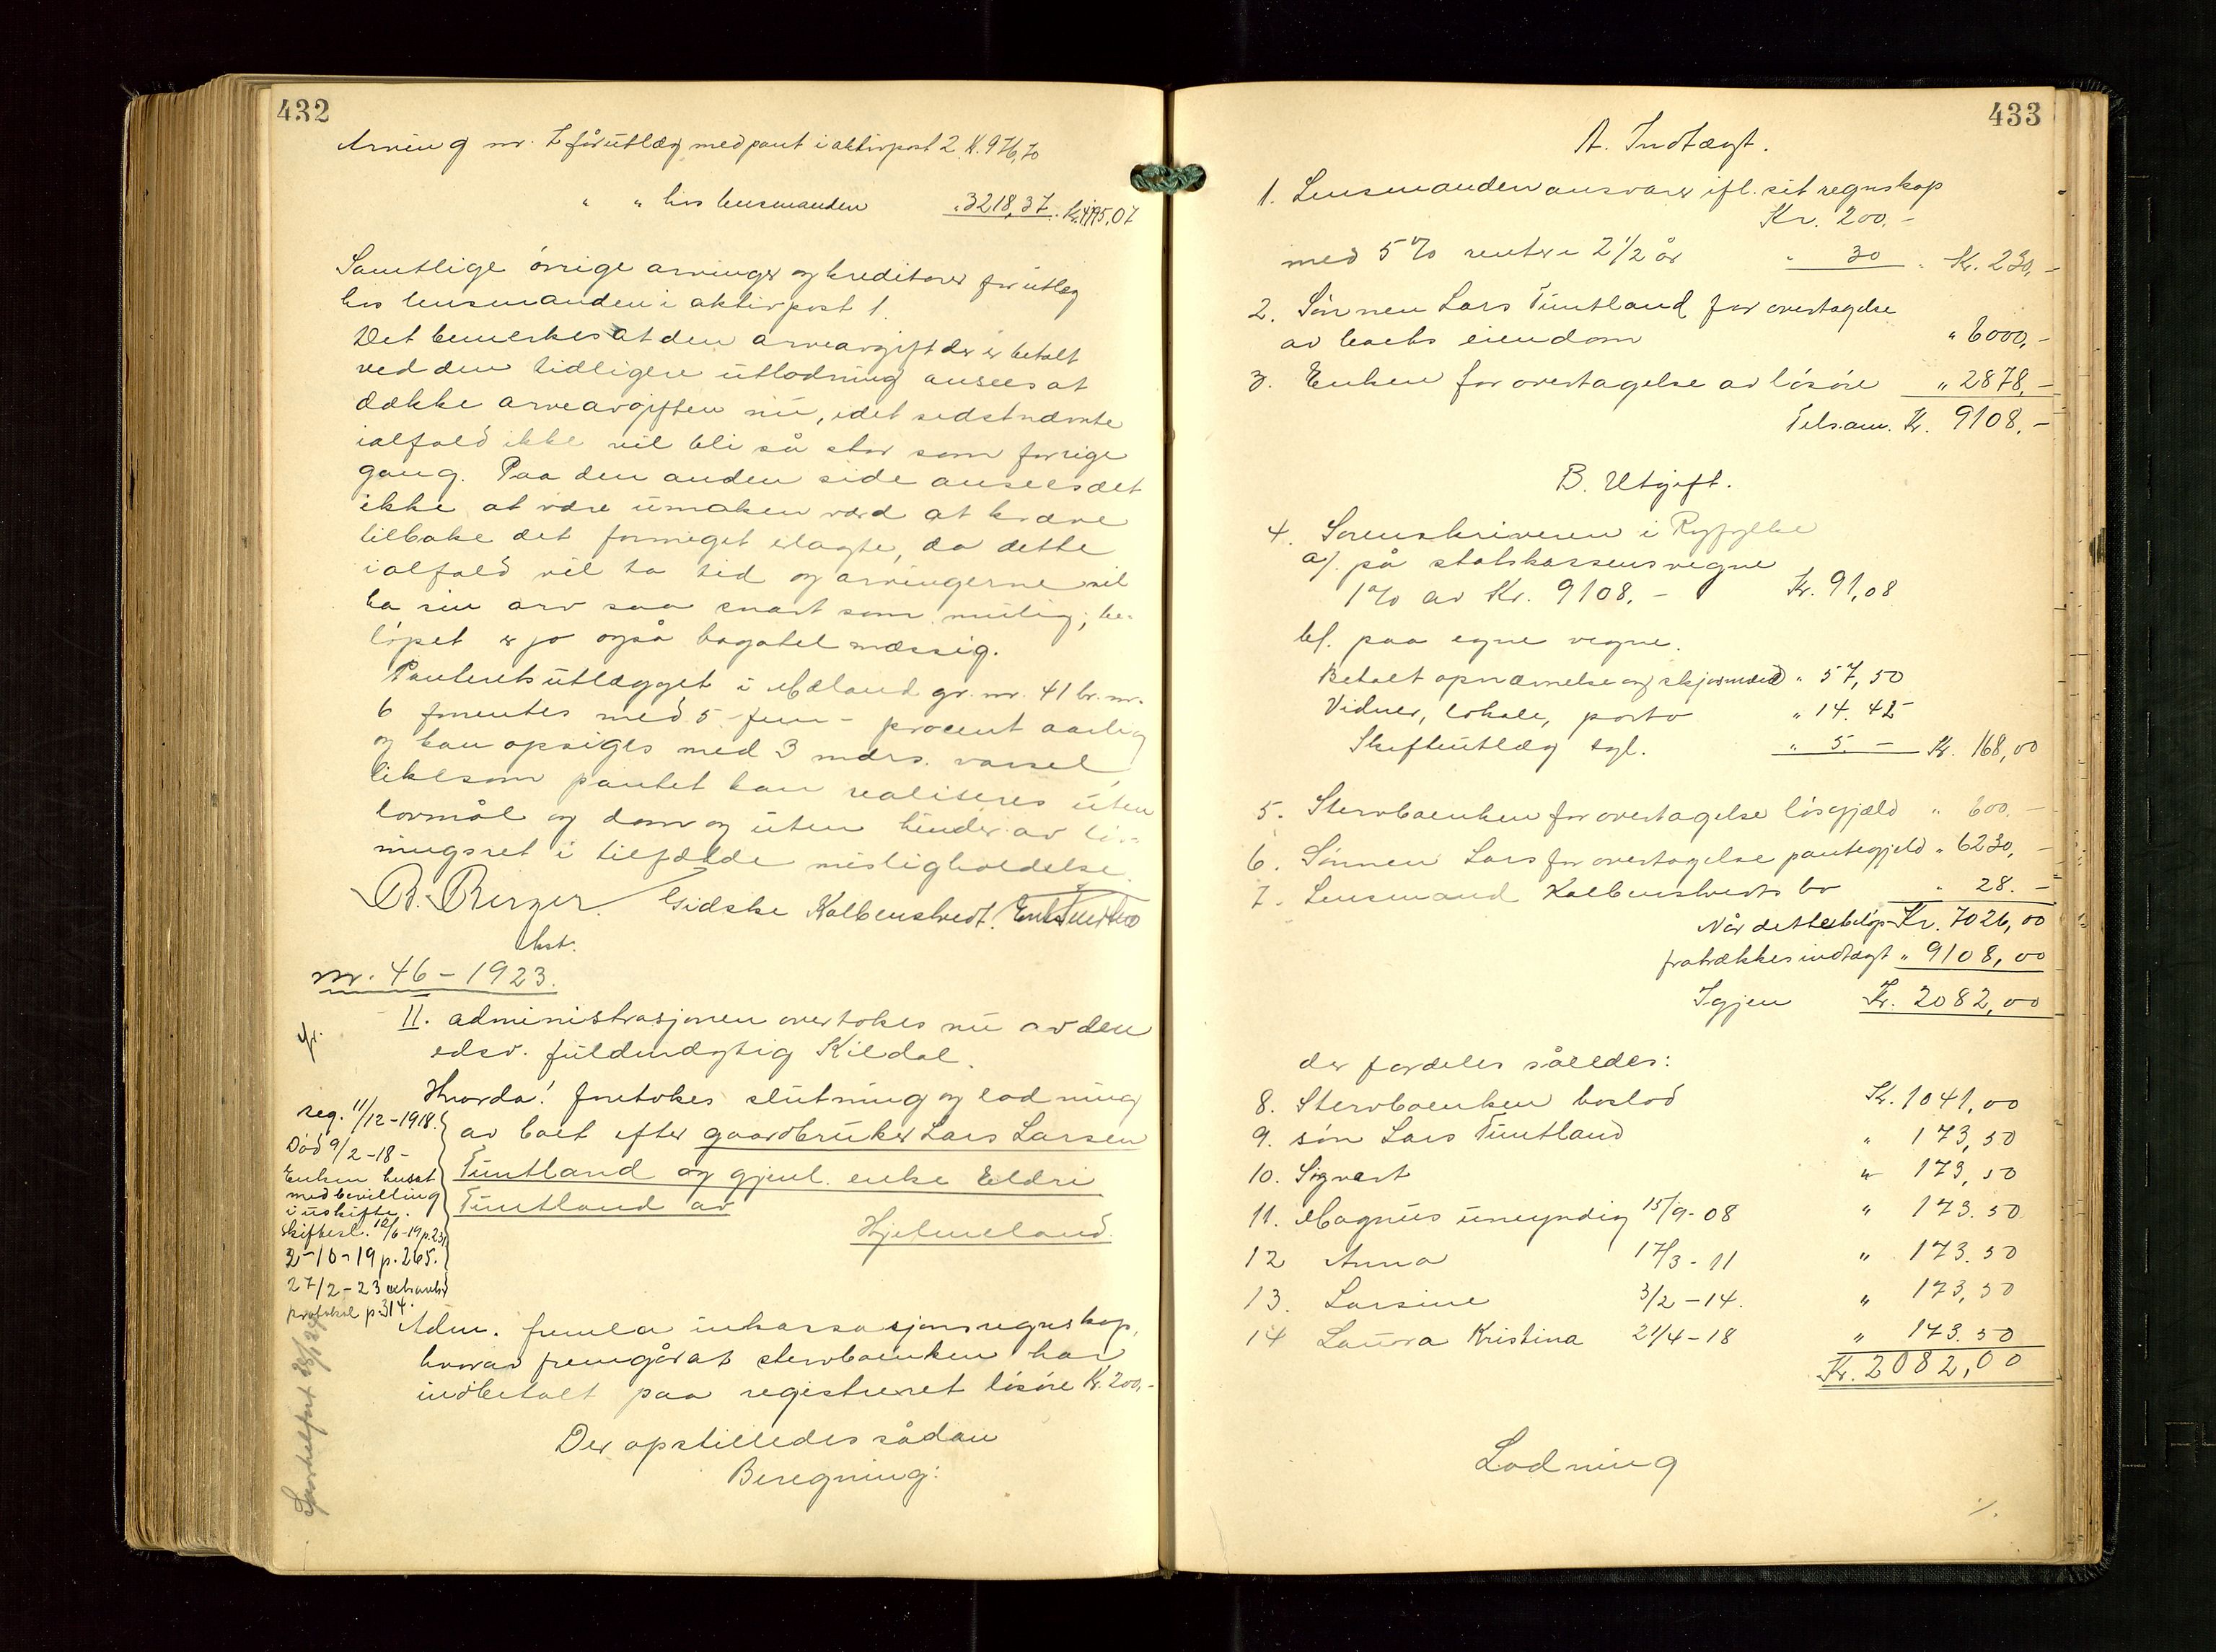 432
Arving nr. 7 får utlæg med pant i aktivpost 2 K. 976,70
" " hos lensmanden " 3218,37. Kr. 4195,07
Samtlige övrige arvinger og kreditorer faar utlæg
hos lensmanden i aktivpost 1.
Det bemerkes at den arveavgift der er betalt
ved den tidligere utlodning ansees at
dække arveavgiften nu, idet sidstnævnte
ialfald ikke vil bli så stor som forrige
gang. Paa den anden side ansees det
ikke at være umaken værd at kræve
tilbake det formeget erlagte, da dette
ialfald vil ta tid og arvingerne vil
ha sin arv saa snart som mulig; be-
löpet er jo også bagatelmæssig.
Panteretsutlægget i Mæland gr. nr. 41 br. nr.
6 forrentes med 5 - fem - procent aarlig
og kan opsiges med 3 mdrs. varsel,
likesom pantet kan realiseres uten
lovmål og dom og uten hinder av lös-
ningsret i tilfælde misligholdelse.
B. Berger. Gidske Kolbenstvedt.
kst.
nr. 46 - 1923.
II. administrasjonen overtokes nu av den
edsv. fuldmægtig Kildal.
Hvorda! foretokes slutning og lodning
av boet efter gaardbruker Lars Larsen
Tuntland og gjenl. enke Eldri
Tuntland av
Hjelmeland.
reg. 11/12-1918.
Död 9/2-18 -
Enken hensat
med bevilling
i uskifte.
Skiftesl. 12/6-19 p. 231
2-10-19 p. 265.
27/2-23 extraret
protokol p. 314.
Adm. fremla inkassasjonsregnskap,
hvorav fremgår at stervboenken har
indbetalt paa registreret lösöre Kr. 200,-
Der opstilledes sådan
Beregning:
433
A. Indtægt.
1. Lensmanden ansvarer ifl. sit regnskap
Kr. 200.-
med 5 % renter i 2 1/2 år " 30 " Kr. 230,-
2. Sönnen Lars Tuntland for overtagelse
av boets eiendom " 6000,-
3. Enken for overtagelse av lösöre " 2878,-
Tilsam. Kr. 9108,-
B. Utgift.
4. Sorenskriveren i Ryfylke
a/. på statskassens vegne
1 % av Kr. 9108.- Kr. 91,08
b/. paa egne vegne.
Betalt opnævnelse og skjönsmænd " 57,50
Vidner, lokale, porto " 14.42
Skifteutlæg tgl. " 5.- Kr. 168,00
5. Stervboenken for overtagelse lösgjæld " 600.-
6. Sönnen Lars for overtagelse pantegjeld " 6230,-
7. Lensmand Kolbenstvedts bo " 28.-
Når dette belöp Kr. 7026,00
fratrækkes indtægt " 9108,00
Igjen Kr. 2082,00
der fordeles således:
8. Stervboenken boslod Kr. 1041,00
9. sön Lars Tuntland " 173,50
10. Sigvart " 173,50
11. Magnus umyndig 15/9-08 " 173.50
12 Anna 17/3-11 " 173.50
13. Larsine 3/2-14. " 173,50
14 Laura Kristina 21/4-18 " 173.50
Kr. 2082,00
Lodning
./.